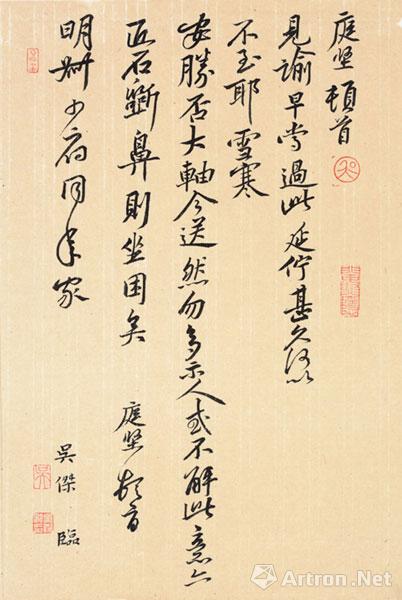 庭堅頓首
見諭早嘗過此延佇甚久何以
不至耶 雪寒
安勝否大軸今送然勿多示人或不解此意亦
匠石斲鼻則坐困矣 庭堅頓首
明叔少府同年家
吳傑臨
Artron.Net